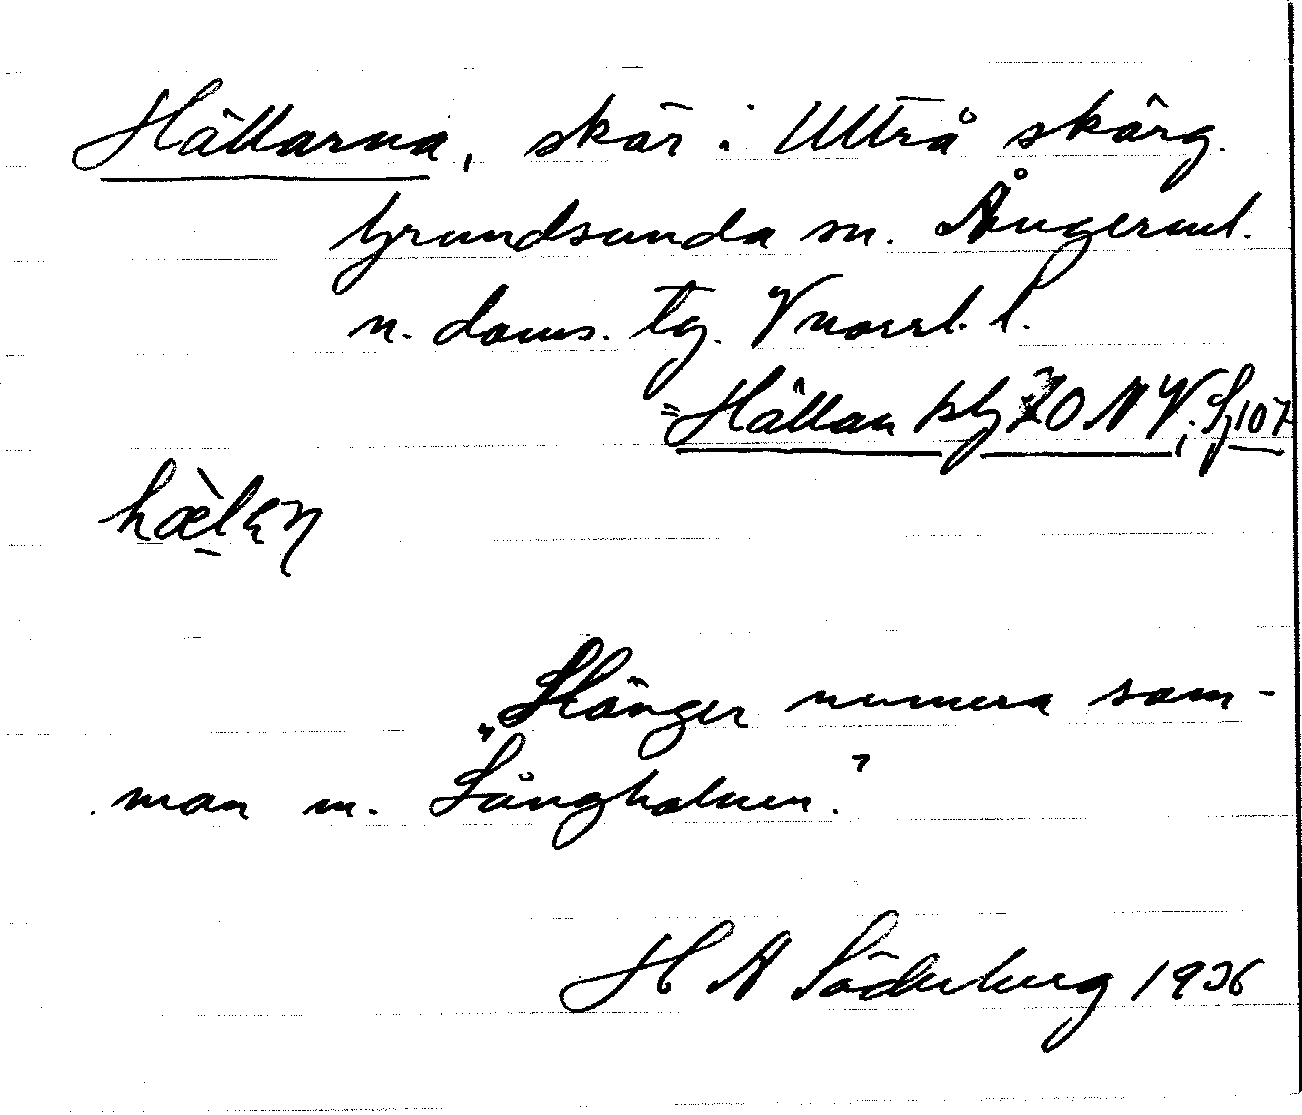 Hällarna, skär i Ulvö skärg.
Grundsunda sn. Ångerml.
n. doms. tg. Vnorrl. l.
=Hällan blg ZO N V; Sj 107
hæ̀lan
"Hänger numera sam-
man m. Långholmen."
H A Söderberg 1936